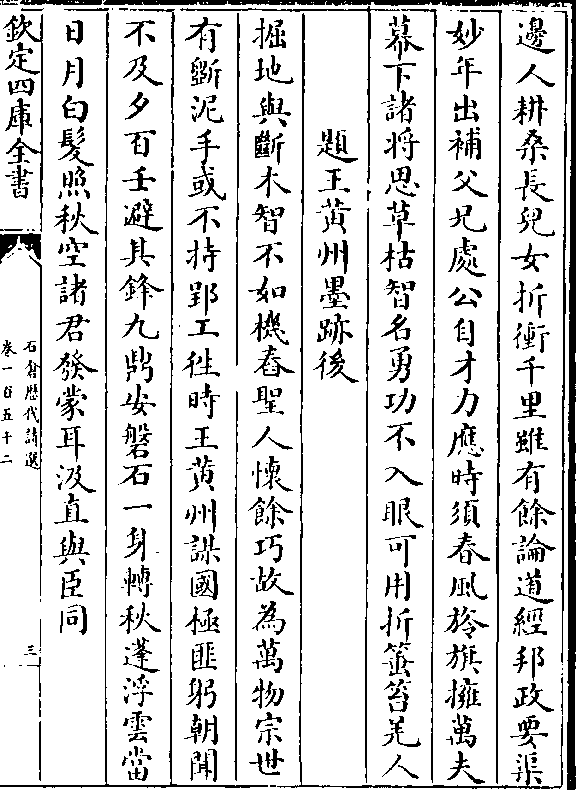 邊人耕桑長兒女折衝千里雖有餘論道經邦政要渠
妙年出補父兄處公自才力應時須春風旍旗擁萬夫
幕下諸將思草枯智名勇功不入眼可用折箠笞羌人
題王黄州墨跡後
掘地與斷木智不如機舂聖人懷餘巧故為萬物宗世
有斵泥手或不待郢工徃時王黄州謀國極匪躬朝聞
不及夕百壬避其鋒九鼎安磐石一身轉秋蓬浮雲當
日月白髮照秋空諸君發蒙耳汲直與臣同
欽定四庫全書
石倉歴代詩選
卷一百五十二
三